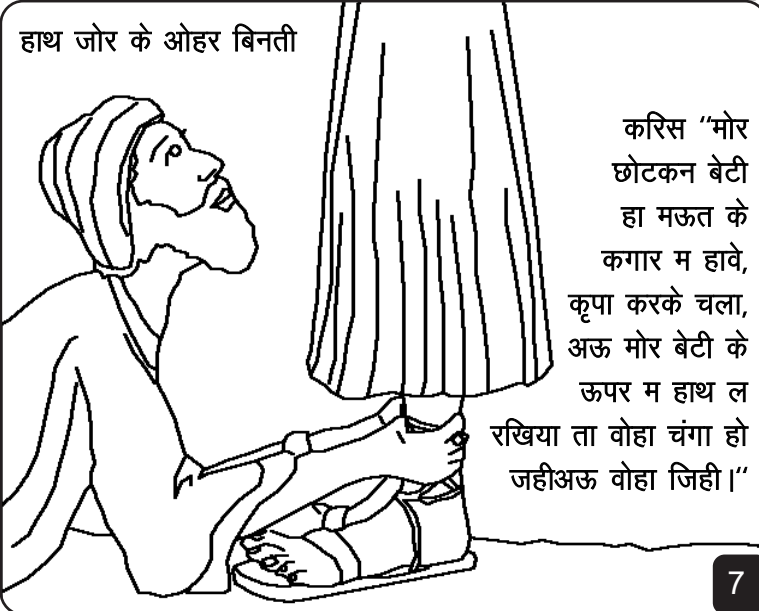 हाथ जोर के ओहर बिनती
करिस “मोर
छोटकन बेटी
हा मऊत के
कगार म हावे,
कृपा करके चला,
अऊ मोर बेटी के
ऊपर म हाथ ल
रखिया ता वोहा चंगा हो
जहीअऊ वोहा जिही।“
7